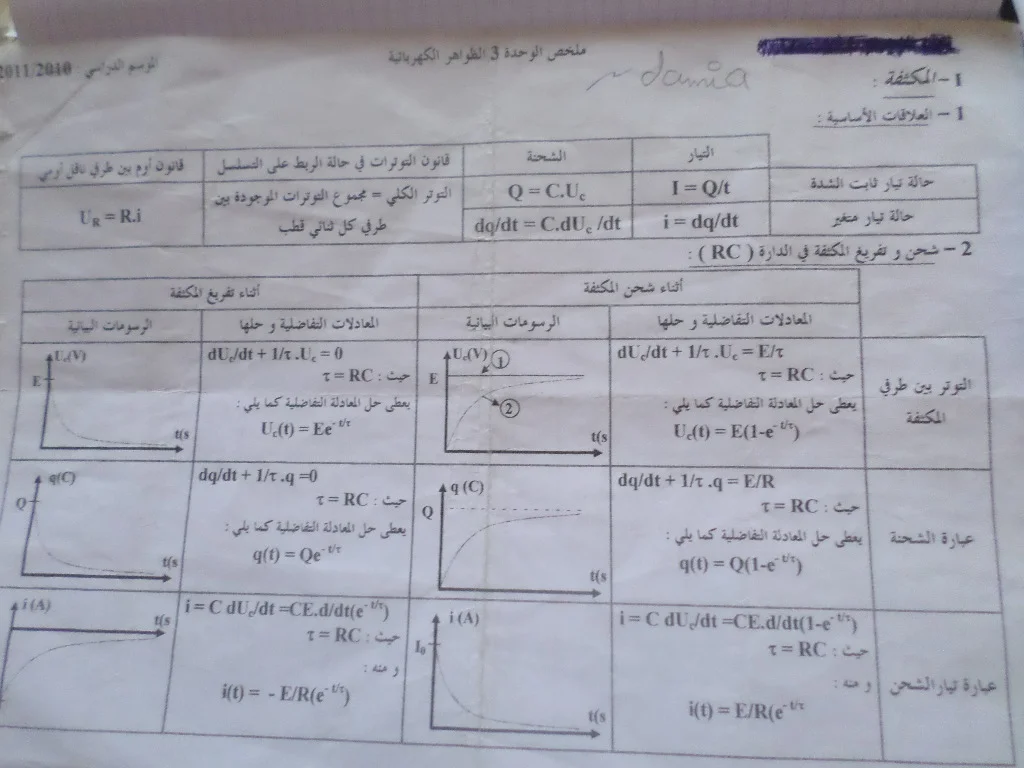 ملخص الوحدة 3 الظواهر الكهربائية
الموسم الدراسي 2011/2010
damia
1 – المكثفة :
1 – العلاقات الأساسية :
التيار
الشحنة
قانون التوترات في حالة الربط على التسلسل
قانون أوم بين طرفي ناقل أومي
حالة تيار ثابت الشدة
I = Q/t
Q = C.Uc
التوتر الكلي = مجموع التوترات الموجودة بين
طرفي كل ثنائي قطب
UR = R.i
حالة تيار متغير
i = dq/dt
dq/dt = C.dUc /dt
2 – شحن و تفريغ المكثفة في الدارة ( RC ) :
أثناء شحن المكثفة
أثناء تفريغ المكثفة
المعادلات التفاضلية و حلها
الرسومات البيانية
المعادلات التفاضلية و حلها
الرسومات البيانية
التوتر بين طرفي
المكثفة
dUc/dt + 1/τ .Uc = E/τ
حيث : τ = RC
يعطى حل المعادلة التفاضلية كما يلي :
Uc(t) = E(1-e^- t/τ)
Uc(V)
1
E
2
t(s
dUc/dt + 1/τ .Uc = 0
حيث : τ = RC
يعطى حل المعادلة التفاضلية كما يلي :
Uc(t) = Ee^- t/τ
Uc(V)
E
t(s
عبارة الشحنة
dq/dt + 1/τ .q = E/R
حيث : τ = RC
يعطى حل المعادلة التفاضلية كما يلي :
q(t) = Q(1-e^- t/τ)
q (C)
Q
t(s
dq/dt + 1/τ .q =0
حيث : τ = RC
يعطى حل المعادلة التفاضلية كما يلي :
q(t) = Qe^- t/τ
q(C)
Q
t(s
عبارة تيار الشحن
i = C dUc/dt =CE.d/dt(1-e^- t/τ)
حيث : τ = RC
و منه :
i(t) = E/R(e^- t/τ
i (A)
I0
t(s
i = C dUc/dt =CE.d/dt(e^- t/τ)
حيث : τ = RC
و منه :
i(t) = - E/R(e^- t/τ)
i (A)
t(s